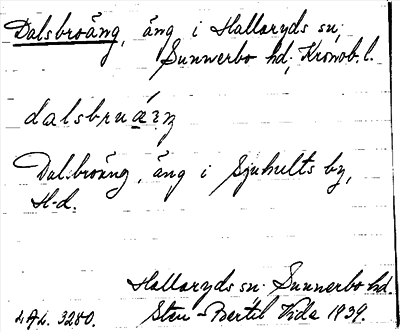 Dalsbroäng, äng i Hallaryds sn,
Sunnerbo hd, Kronob. l.
dalsbruäŋ
Dalsbroäng, äng i Sjuhults by,
H-d.
Hallaryds sn. Sunnerbo hd.
LAL. 3280. Sten-Bertil Vide 1939.